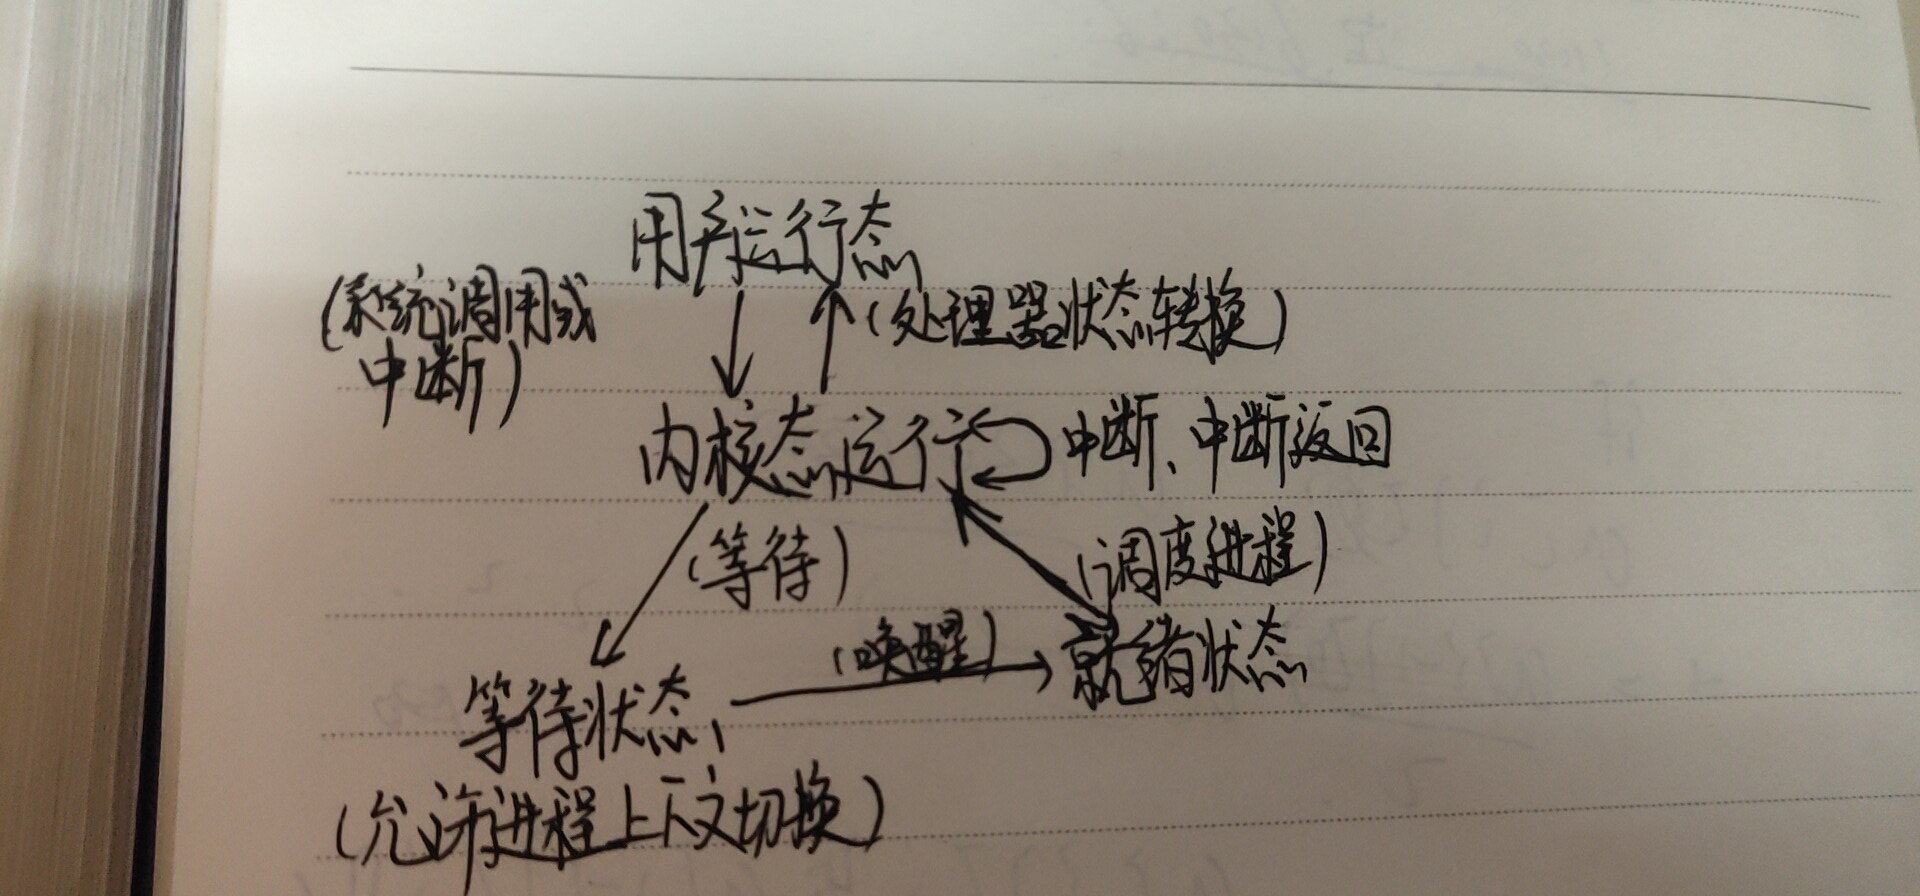 用户运行态
(系统调用或
中断)
(处理器状态转换)
内核态运行
中断、中断返回
(等待)
(调度进程)
(唤醒)
等待状态
就绪状态
(允许进程上下文切换)